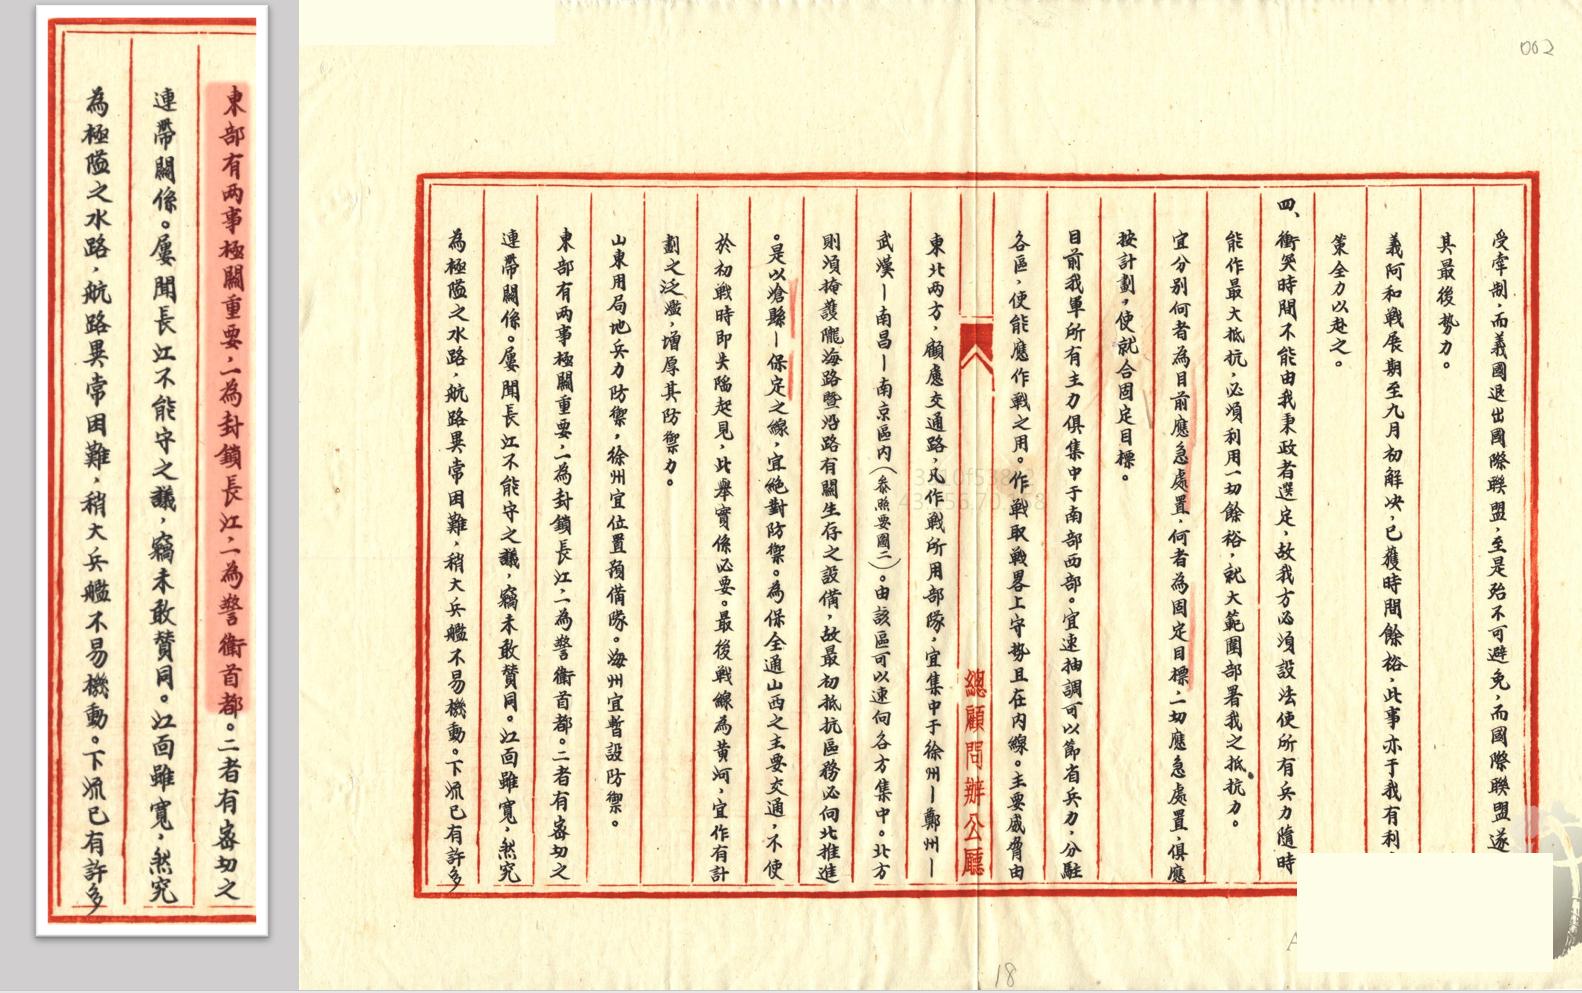 東部有两事極關重要，一為封鎖長江，二為警衛首都。二者有密切之
連帶關係。屢聞長江不能守之議，竊未敢贊同。江面雖寬，然究
為極隘之水路，航路異常困難，稍大兵艦不易機動。下流已有許多
002
受牽制，而義國退出國際聯盟，至是殆不可避免，而國際聯盟遂
其最後勢力。
義阿和戰展期至九月初解决，已獲時間餘裕，此事亦于我有利
策全力以赴之。
四、衝突時間不能由我秉政者選定，故我方必須設法使所有兵力隨時
能作最大抵抗，必須利用一切餘裕，就大範圍部署我之抵抗力。
宜分别何者為目前應急處置，何者為固定目標，一切應急處置，俱應
按計劃，使就合固定目標。
目前我軍所有主力俱集中于南部西部。宜速抽調可以節省兵力，分駐
各區，使能應作戰之用。作戰取戰畧上守勢且在内線。主要威脅由
總顧問辦公廳
東北两方，顧慮交通路，凡作戰所用部隊，宜集中于徐州—鄭州—
武漢—南昌—南京區内（參照要圖二）。由該區可以速向各方集中。北方
則須掩護隴海路暨沿路有關生存之設備，故最初抵抗區務必向北推進
。是以滄縣—保定之線，宜絶對防禦。為保全通山西之主要交通，不使
於初戰時即失陷起見，此舉實係必要。最後戰線為黄河，宜作有計
劃之泛濫，增厚其防禦力。
山東用局地兵力防禦，徐州宜位置預備隊。海州宜暫設防禦。
東部有两事極關重要，一為封鎖長江，二為警衛首都。二者有密切之
連帶關係。屢聞長江不能守之議，竊未敢贊同。江面雖寬，然究
為極隘之水路，航路異常困難，稍大兵艦不易機動。下流已有許多
18